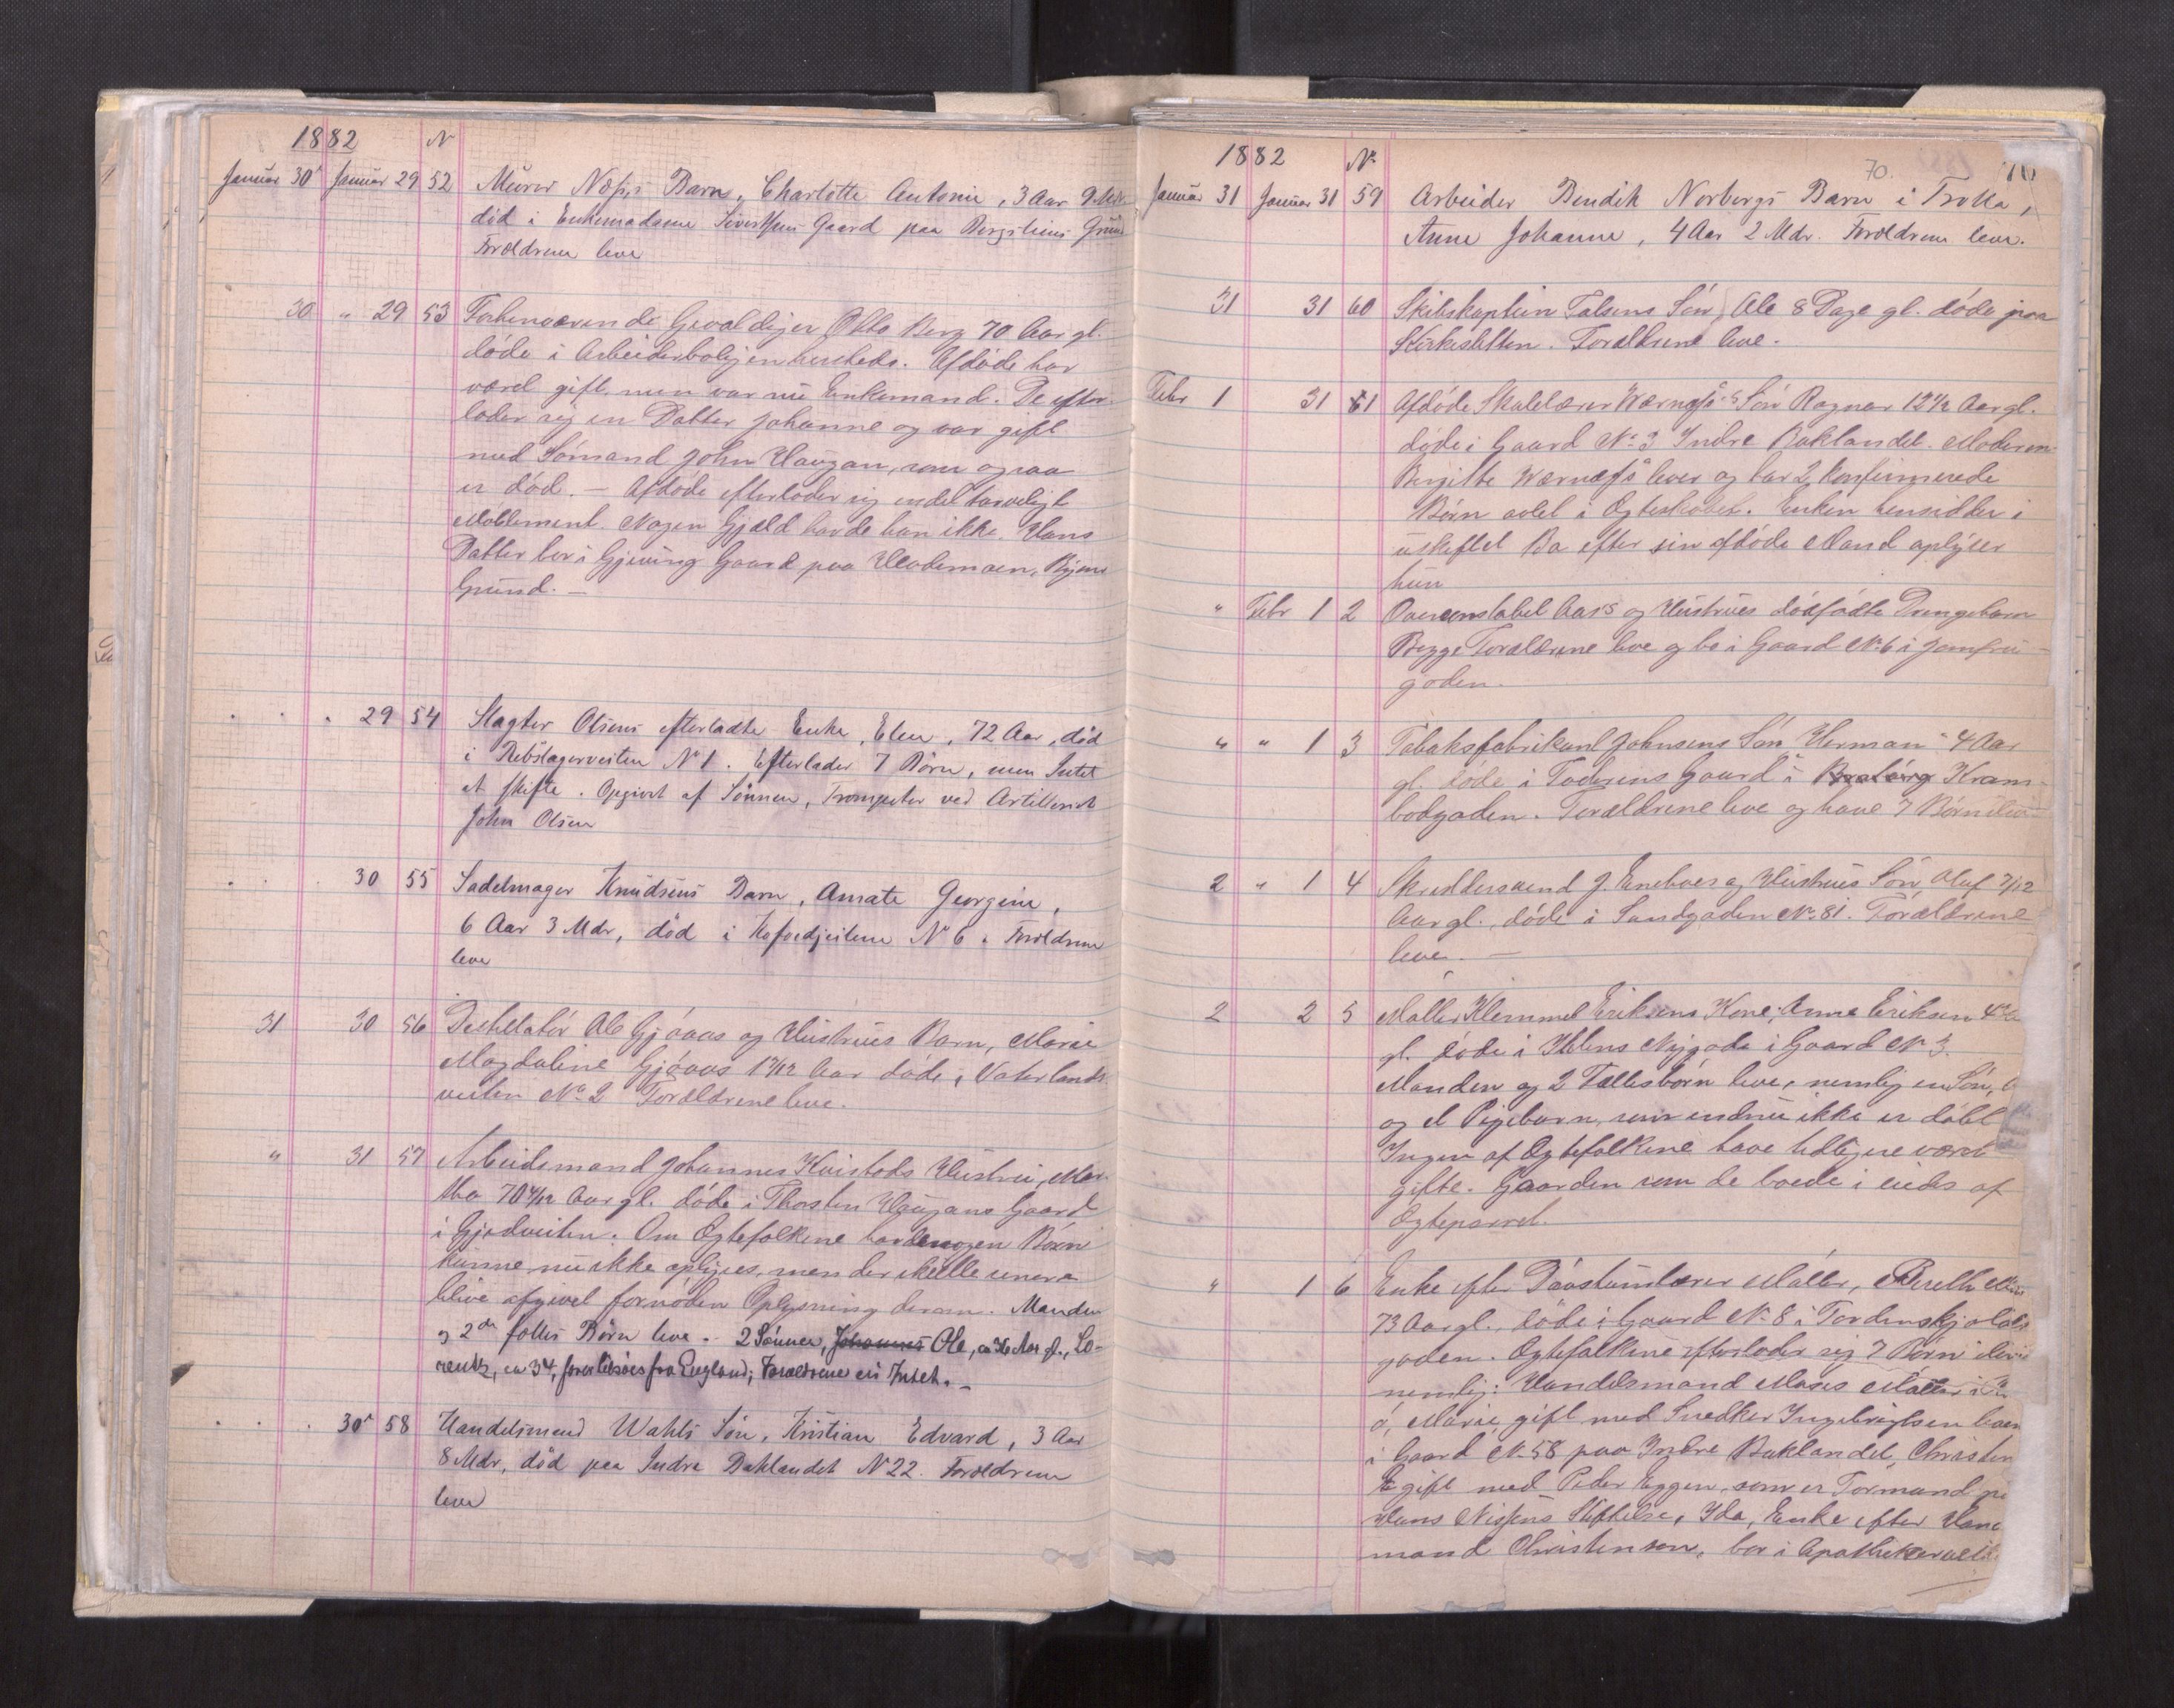 1882 N
Januar 30 Januar 29 52 Murer Næss's Barn, Charlotte Antonie, 3 Aar 9 Mdr
död i Enkemadame Sivertsens Gaard paa Bergsliens Grund
Forældrene leve
30 " 29 53 Forhenværende Gevaldiger Otto Berg 70 Aar gl.
døde i Arbeiderboligen hersteds. Afdøde har
været gift, men var nu Enkemand. De efter-
lader sig en Datter Johanne og var gift
med Sømand John Haugan, som ogsaa
er død. — Afdøde efterlader sig endel tarveligt
Møblement. Nogen Gjæld havde han ikke. Hans
Datter bor i Gjeving Gaard paa Vlademoen, Byens
Grund. —
29 54 Slagter Olsens efterladte Enke, Elen, 72 Aar, död
i Rebslagerveiten N 1. Efterlader 7 Børn, men Intet
at skifte. Opgivet af Sønnen, Trompeter ved Artilleriet
John Olsen
30 55 Sadelmager Knudsens Barn, Amate Georgine,
6 Aar 3 Mdr, död i N 6. Forældrene
leve
31 30 56 Destelatör Ole Gjøaas og Hustrues Barn, Marie
Magdaline Gjøaas 1 Aar døde i Vaterlands-
veiten No 2 Forældrene leve.
" 31 57 Arbeidsmand Johannes Kvistads Hustru, Mar-
tha 70 Aar gl. døde i Thorsten Haugans Gaard
i Gjødveiten. Om Egtefolkene havde nogen Börn
kunne nu ikke oplyses, men der skulle senere
blive afgivet fornøden Oplysning derom. Manden
og 2de fælles Børn leve. 2 Sønner, Johannes Ole, ca 36 Aar gl., Lo-
rentz, ca 34, fra England; Forældrene eie Intet. —
30 58 Handelsmand Wahls Søn, Kristian Edvard, 3 Aar
8 Mdr, död paa Indre Baklandet N 22. Forældrene
leve
1882 No 70.
Januar 31 Januar 31 59 Arbeider Bendik Norbergs Barn i Trolla,
Anne Johanne, 4 Aar 2 Mdr. Forældrene leve.
31 31 60 Skibskaptein Falsens Søn, Ole 8 Dage gl. døde paa
Kirkesletten. Forældrene leve.
Febr 1 31 61 Afdøde Skolelærer Wærnæss's Søn Ragnar 12½ Aar gl.
døde i Gaard No 3 Indre Baklandet. Moderen
Birgitte Wærnæss lever og har 2 konfirmerede
Børn avlet i Egteskabet. Enken hensidder i
uskiftet Bo efter sin afdøde Mand oplyser
hun
" Febr 1 2 Overconstabel Aas's og Hustrues dødfødte Drengebarn
Begge Forældrene leve og bo i Gaard No 6 i Jomfru-
gaden.
" " 1 3 Tobaksfabrikant Johnsens Søn "Herman" 4 Aar
gl. døde i Gaard i Kram-
bodgaden. Forældrene leve og have 7 Børn
2 " 1 4 Skreddersvend J. Eneboes og Hustrues Søn, Oluf 7/12
Aar gl., døde i Sandgaden No 81. Forældrene
leve. —
2 2 5 Møller Klemmet Eriksens Kone, Anne Eriksen
gl. døde i Ihlens Nygade i Gaard No 3.
Manden og 2 Fællesbörn leve, nemlig en Søn,
og et Pigebarn, som endnu ikke er døbt
Ingen af Egtefolkene have tidligere været
gifte. Gaarden som de boede i eiedes af
Egteparret.
" 1 6 Enke efter Møller, Bereth
73 Aar gl., døde i Gaard No 8 i Tordenskjolds
gaden. Egtefolkene efterlader sig 7 Børn
nemlig: Handelsmand Moses Møller i
ö, Marie, gift med Snedker Ingebrigtsen boen
i Gaard No 58 paa Indre Baklandet, Christen
E gift med Peder Eggen, som er Formand
Hans Nissens Stiftelse, Ida, Enke efter
mand Christensen, bor i Apothekerveit